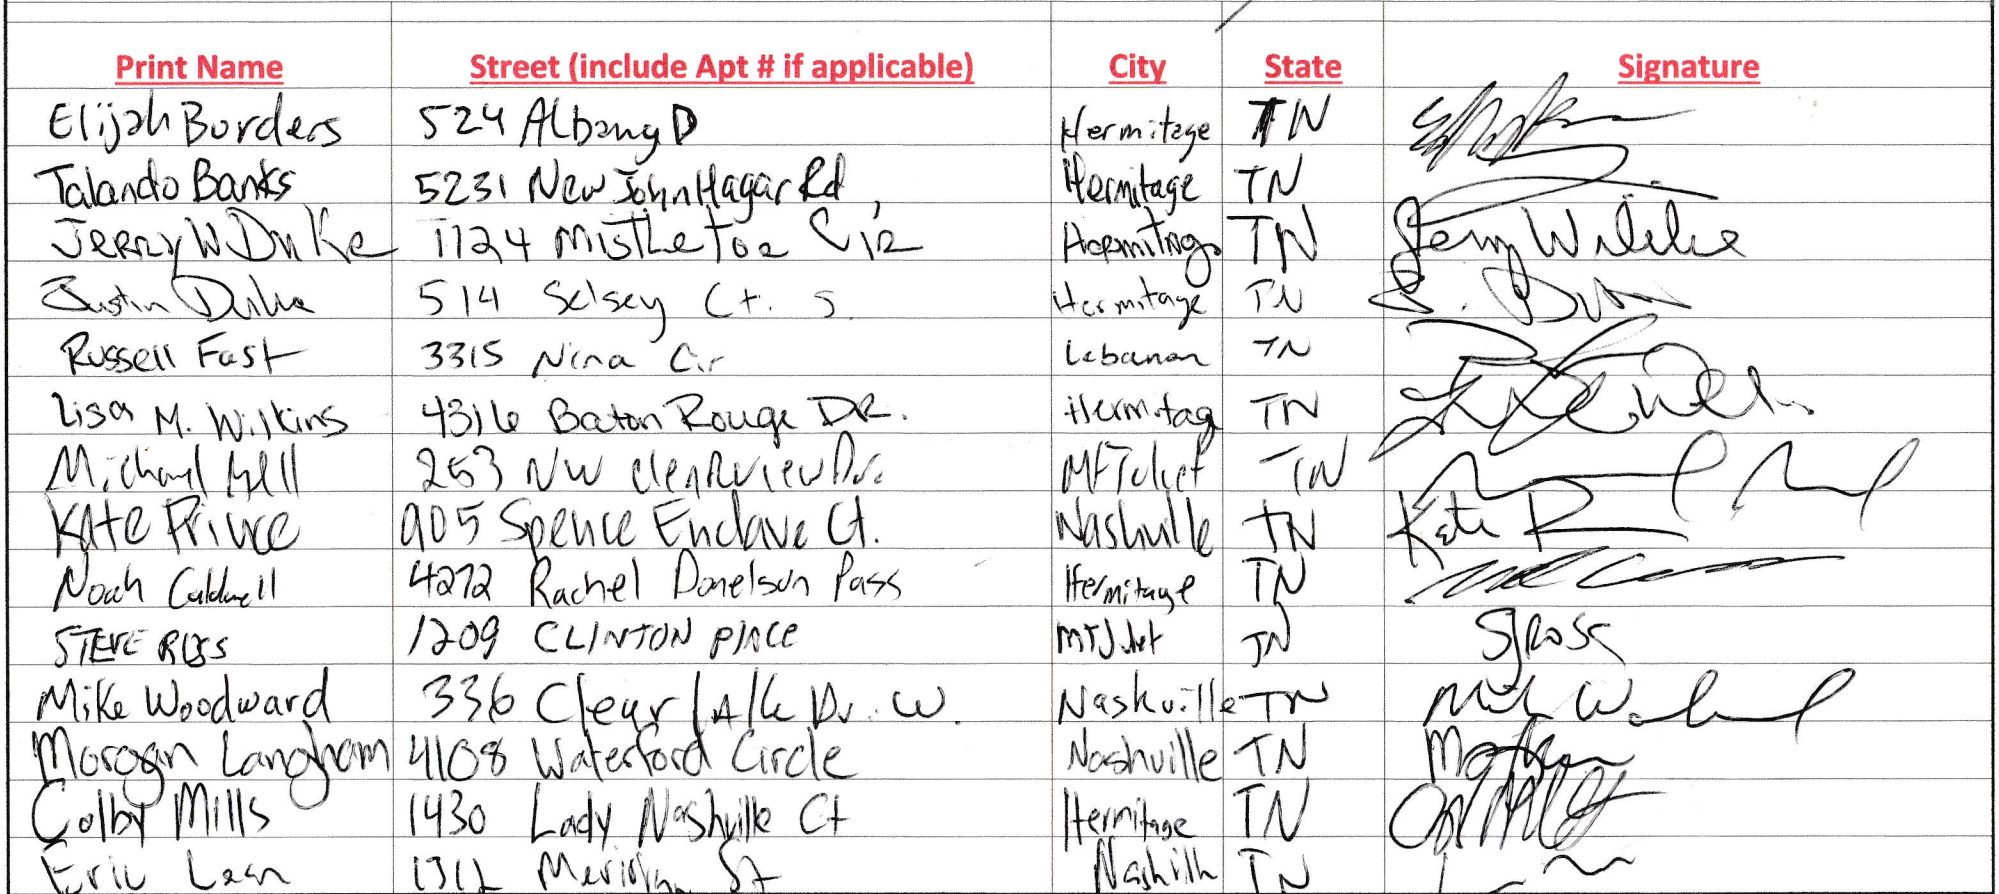 Print Name Street (include Apt # if applicable) City State Signature
Elijah Borders 524 Albany D Hermitage TN
Talando Banks 5231 New John Hagar Rd, Hermitage TN
Jerry W Duke 1124 Mistletoe Cir Hermitage TN
Justin Duke 514 Selsey Ct. S. Hermitage TN
Russell Fast 3315 Nina Cir Lebanon TN
Lisa M. Wilkins 4316 Baton Rouge DR. Hermitag TN
Michael 253 NW Clearview Dr. Mt Juliet TN
Kate Prince 905 Spence Enclave Ct. Nashville TN Kate
Noah Caldwell 4272 Rachel Donelson Pass Hermitage TN
STEVE ROSS 1209 CLINTON PlACE MT Juliet TN SJRoss
Mike Woodward 336 Clear lake Dr. W. Nashville TN
Morgan Langham 4108 Waterford Circle Nashville TN
Colby Mills 1430 Lady Nashville Ct Hermitage TN
Eric 1312 Meridian St Nashville TN